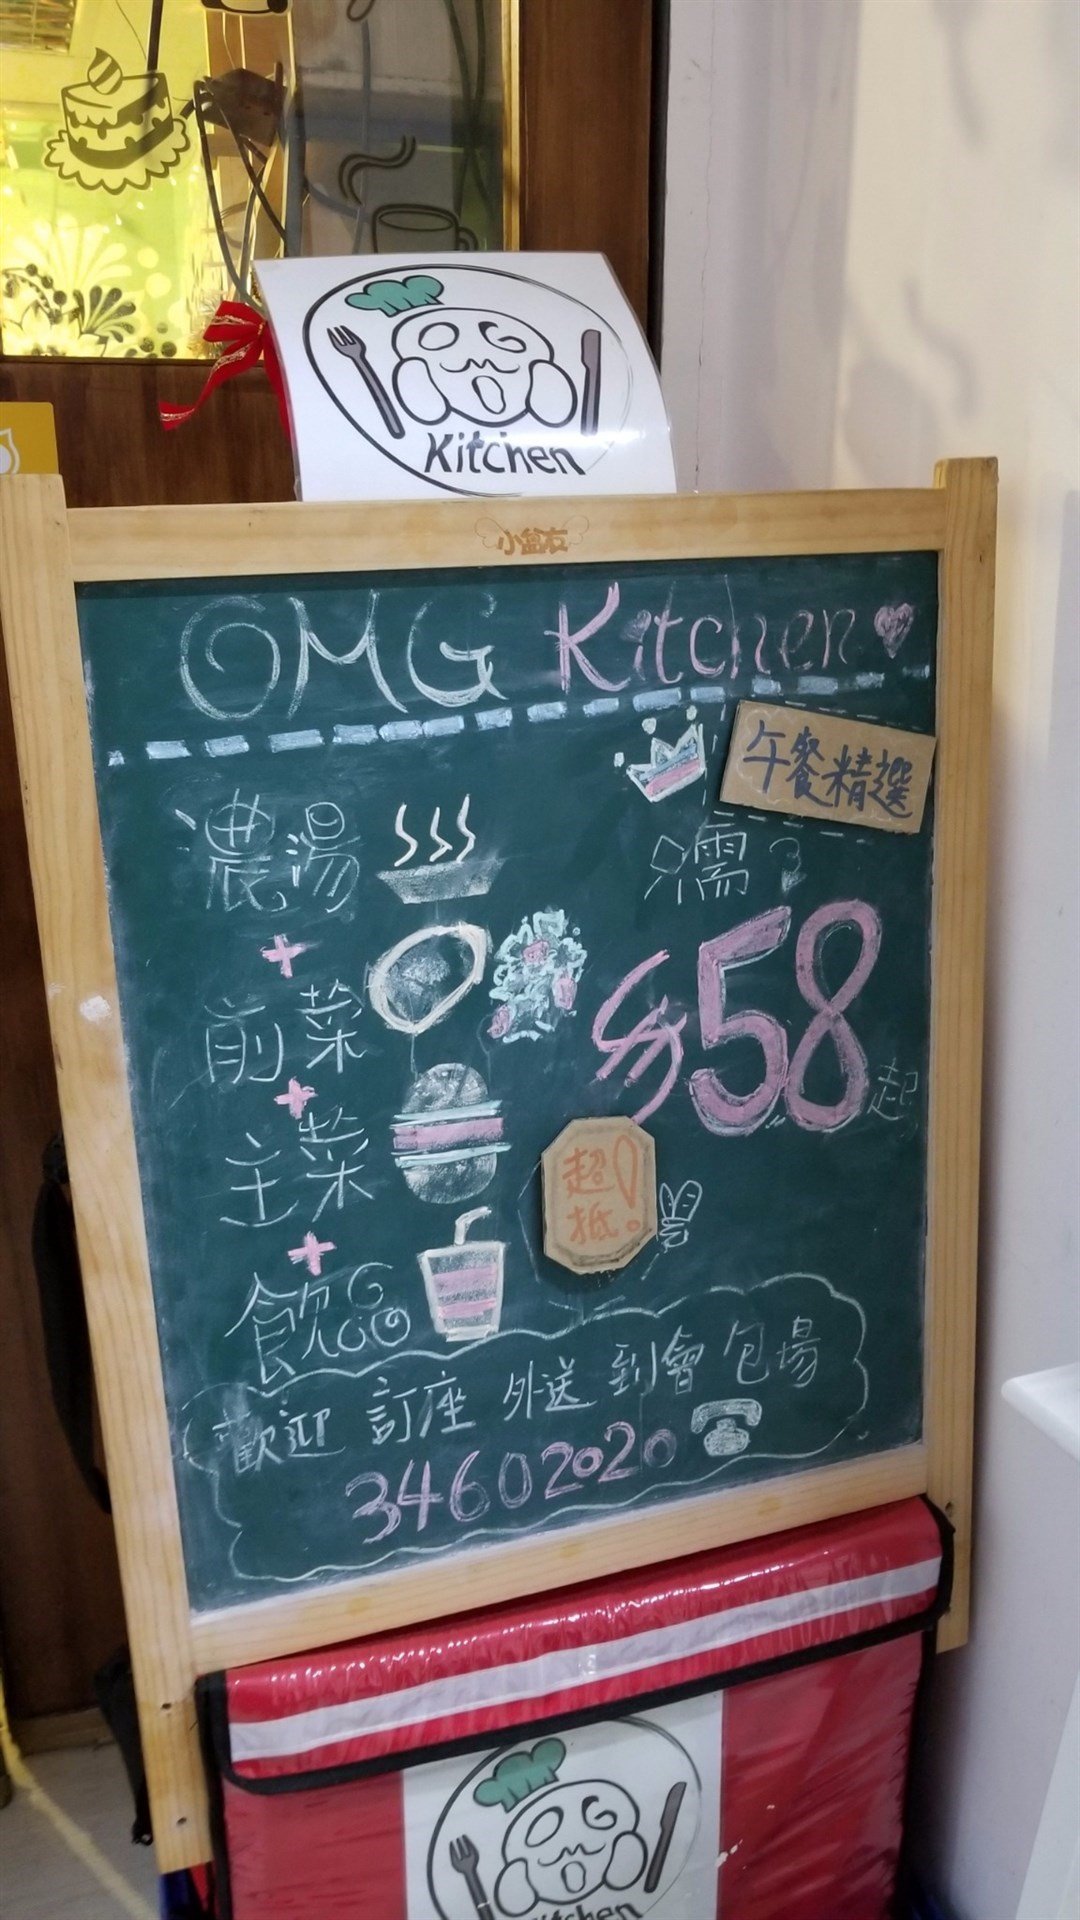 OMG
Kitchen
小盆友
OMG Kitchen
午餐精選
濃湯
+
前菜
+
主菜
+
飲品
$58起
超抵!
歡迎 訂座 外送 到會 包場
34602020
OMG
Kitchen